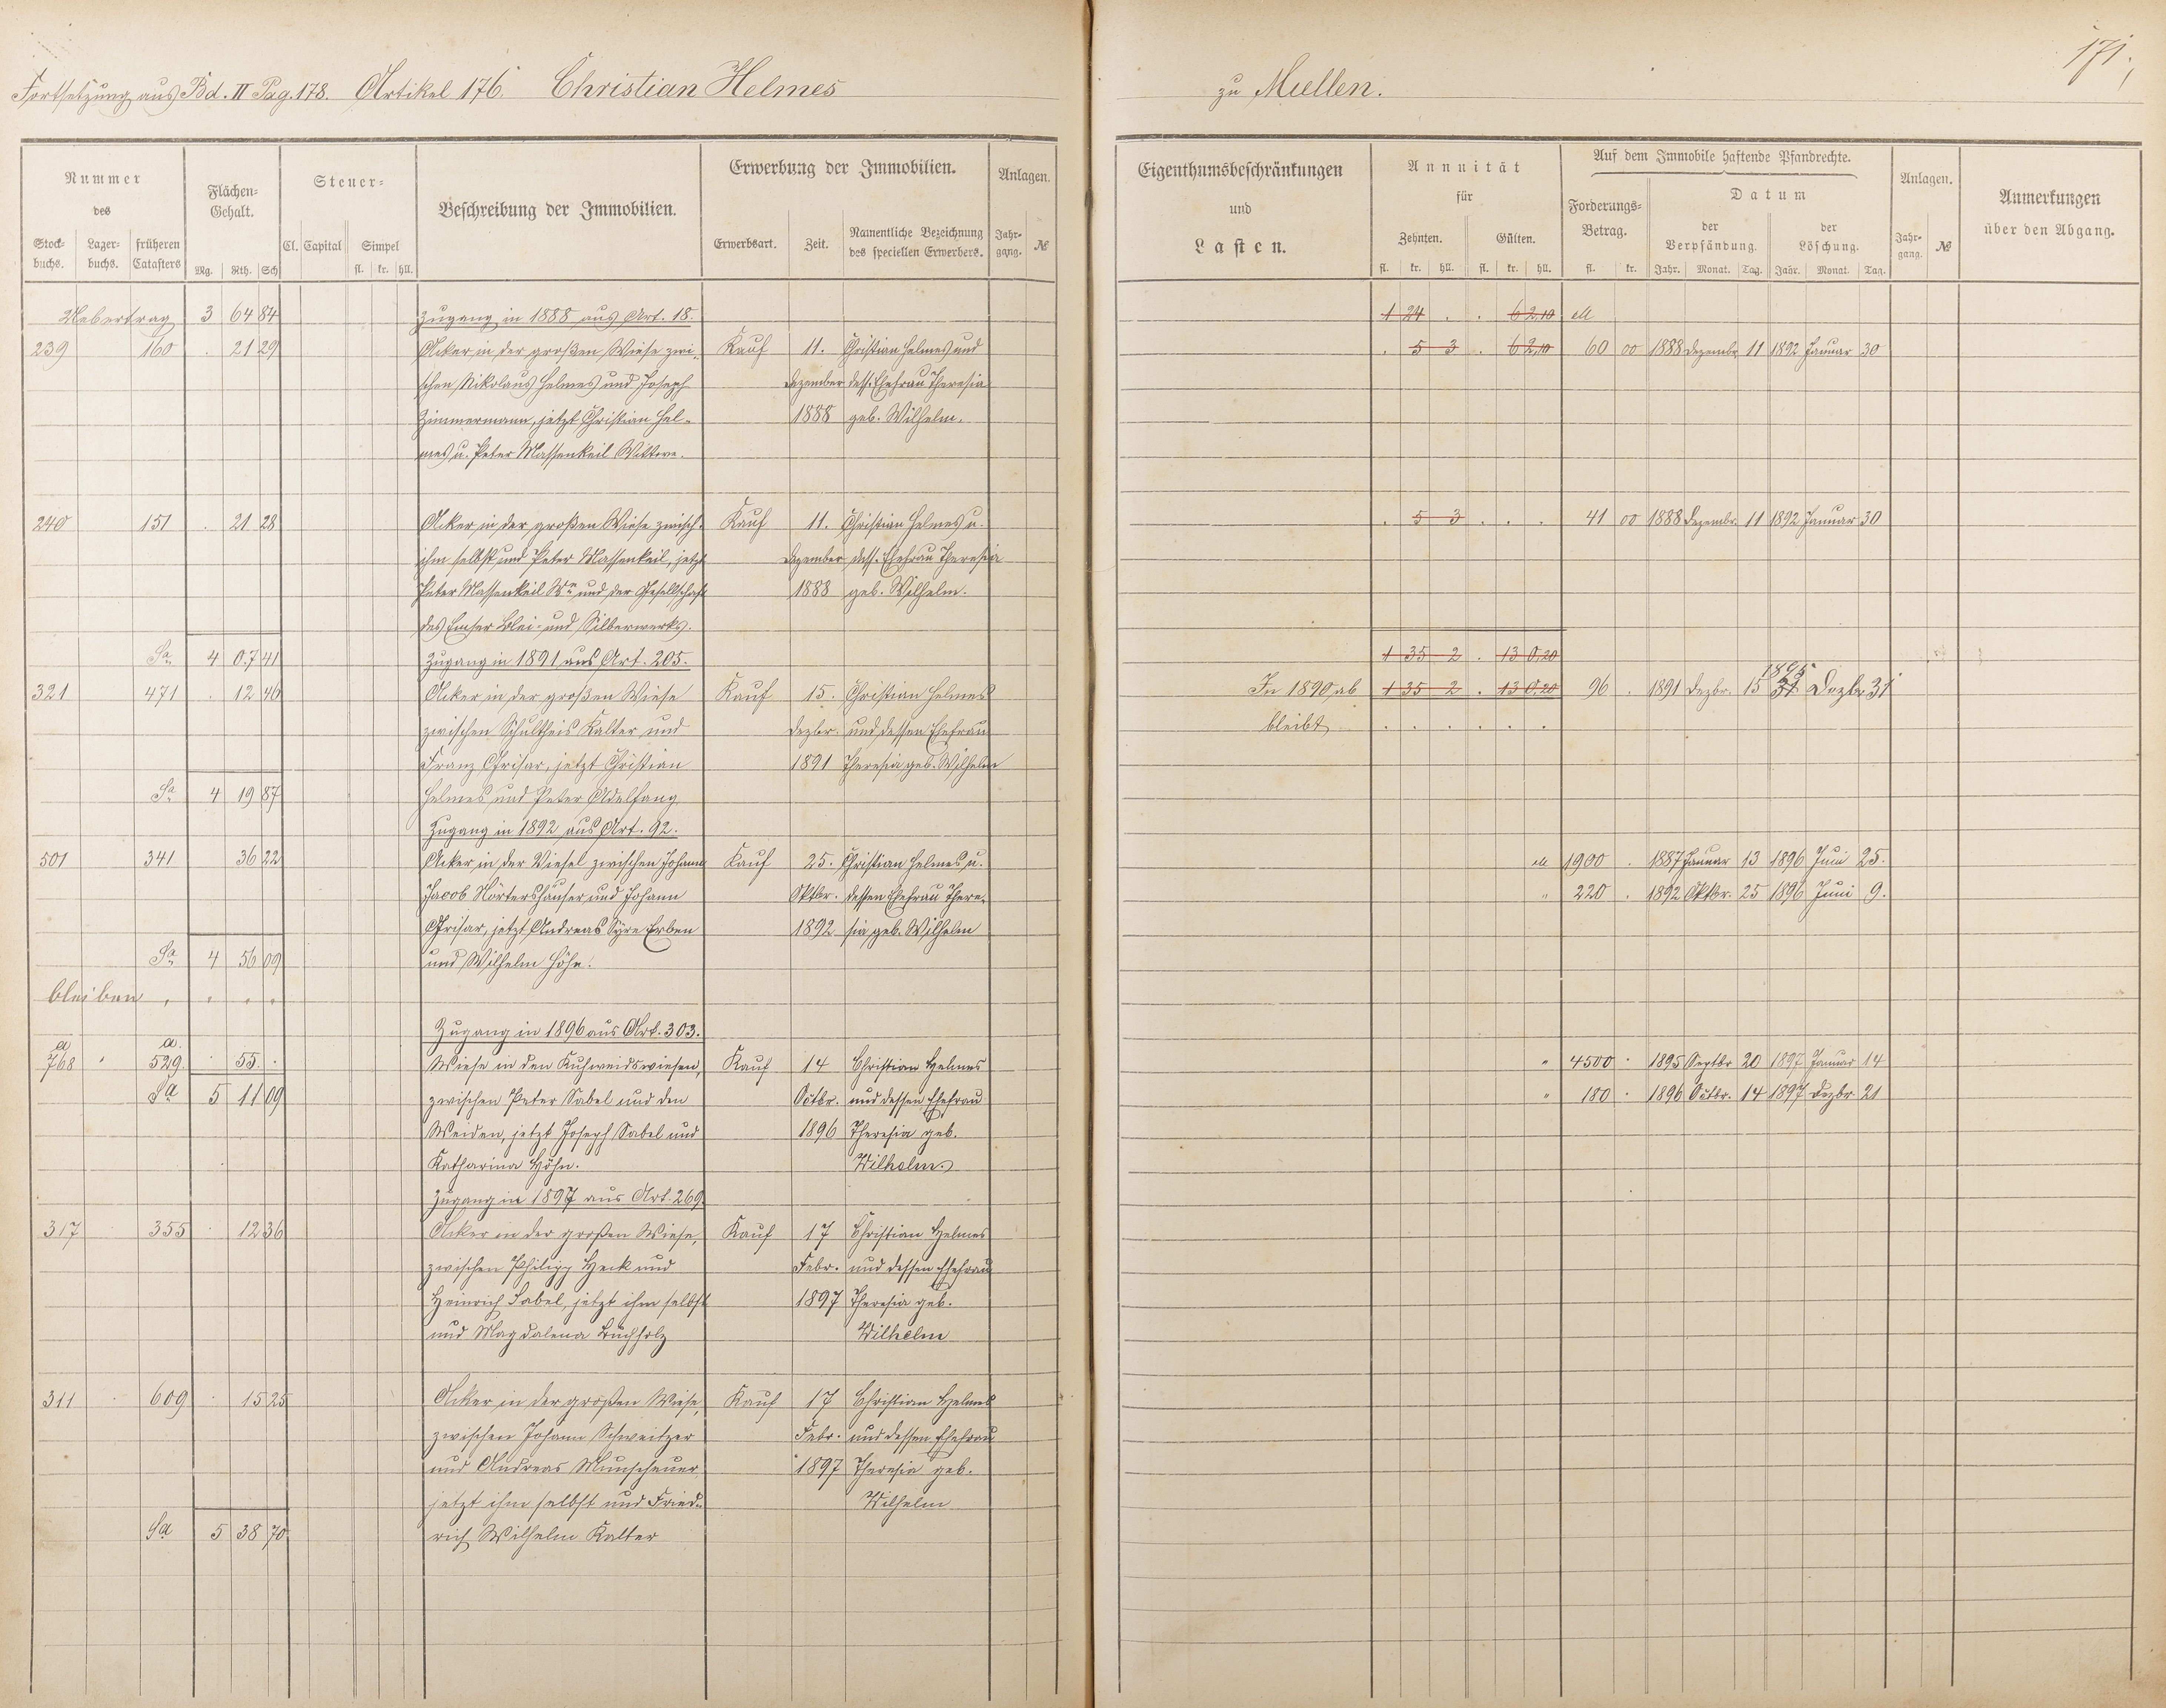 Fortsetzung aus Bd. II Pag. 178. Artikel 176. Christian Helmes
zu Miellen.
171.
Nummer des
Flächen-Gehalt.
Steuer-
Beschreibung der Immobilien.
Erwerbung der Immobilien.
Anlagen.
Stock-buchs. Lager-buchs. früheren Catasters
Mg. Rth. Sch
Cl. Capital Simpel
fl. kr. hll.
Erwerbsart. Zeit. Namentliche Bezeichnung des speciellen Erwerbers.
Jahr-gang. №
Eigenthumsbeschränkungen
und
Lasten.
Annuität
für
Zehnten. Gülten.
fl. kr. hll. fl. kr. hll.
Auf dem Immobile haftende Pfandrechte.
Forderungs-Betrag.
fl. kr.
Datum
der Verpfändung. der Löschung.
Jahr. Monat. Tag. Jahr. Monat. Tag.
Anlagen.
Jahr-gang. №
Anmerkungen
über den Abgang.
Uebertrag 3 64 84 Zugang in 1888 aus Art. 18. 1 24 . . 6 2,10 M
239 160 . 21 29 Acker in der großen Wiese zwi- Kauf 11. Christian Helmes und . 5 3 . 6 2,10 60 00 1888 Dezembr. 11 1892 Januar 30
schen Nikolaus Helmes und Joseph Dezember dess. Ehefrau Theresia
Zimmermann, jetzt Christian Hel- 1888 geb. Wilhelm.
mes u. Peter Massenkeil Wittwe.
240 151 . 21 28 Acker in der großen Wiese zwisch. Kauf 11. Christian Helmes u. . 5 3 . . . 41 00 1888 Dezembr. 11 1892 Januar 30
ihm selbst und Peter Massenkeil, jetzt Dezember dess. Ehefrau Theresia
Peter Massenkeil Ww und der Gesellschaft 1888 geb. Wilhelm.
des Emser Blei- und Silberwerks.
Sa. 4 07 41 Zugang in 1891 aus Art. 205. 1 35 2 . 13 0,20
321 471 . 12 46 Acker in der großen Wiese Kauf 15. Christian Helmes In 1890 ab 1 35 2 . 13 0,20 96 . 1891 Dezbr. 15 1895 Dezbr 31
zwischen Schultheis Kalter und Dezbr. und dessen Ehefrau bleibt . . . . . .
Franz Grisar, jetzt Christian 1891 Theresia geb. Wilhelm
Sa. 4 19 87 Helmes und Peter Adelfang
Zugang in 1892 aus Art. 92.
501 341 36 22 Acker in der Viesel zwischen Johann Kauf 25. Christian Helmes u. M 1900 . 1887 Januar 13 1896 Juni 25.
Jacob Hörtershäuser und Johann Oktbr. dessen Ehefrau There- " 220 . 1892 Oktbr. 25 1896 Juni 9.
Grisar, jetzt Andreas Syre Erben 1892 sia geb. Wilhelm
Sa. 4 56 09 und Wilhelm Höhn.
bleiben . . . .
Zugang in 1896 aus Art. 303.
a a.
768 529 . 55 . Wiese in den Kuhweidswiesen, Kauf 14 Christian Helmes " 4500 . 1895 Septbr 20 1897 Januar 14
Sa 5 11 09 zwischen Peter Sabel und den Octbr. und dessen Ehefrau " 180 . 1896 Octbr. 14 1897 Dezbr 21
Weiden, jetzt Joseph Sabel und 1896 Theresia geb.
Katharina Höhn. Wilhelm.
Zugang in 1897 aus Art. 269.
317 355 . 12 36 Acker in der großen Wiese, Kauf 17 Christian Helmes
zwischen Philipp Heck und Febr. und dessen Ehefrau
Heinrich Sabel, jetzt ihm selbst 1897 Theresia geb.
und Magdalena Buchholz Wilhelm
311 609 . 15 25 Acker in der großen Wiese, Kauf 17 Christian Helmes
zwischen Johann Schweitzer Febr. und dessen Ehefrau
und Andreas Munscheuer, 1897 Theresia geb.
jetzt ihm selbst und Fried- Wilhelm
Sa 5 38 70 rich Wilhelm Kalter